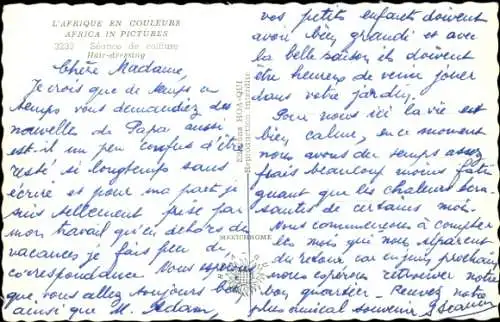 L'AFRIQUE EN COULEURS
AFRICA IN PICTURES
3233 Séance de coiffure
Hair-dressing
Chère Madame,
Je crois que de temps en
temps vous demandiez des
nouvelle de Papa aussi
est-il un peu confus d'être
resté si longtemps sans
écrire et pour ma part je
suis tellement prise par
mon travail qu'en dehors de
vacances je fais peu de
correspondance. Nous espérons
que vous allez toujours bien
ainsi que M. Adam,
Editions HOA-QUI
Reproduction interdite
MEXICHROME
vos petits enfants doivent
avoir bien grandi et avec
la belle saison ils doivent
être heureux de venir jouer
dans votre jardin.
Pour nous ici la vie est
bien calme, en ce moment
nous avons du temps assez
frais beaucoup moins fati
guant que les chaleurs
de certains mois.
Nous commençons à compter
les mois qui nous séparent
du retour car en juin prochain
nous espérons retrouver notre
bon quartier. Recevez notre
plus amical souvenir